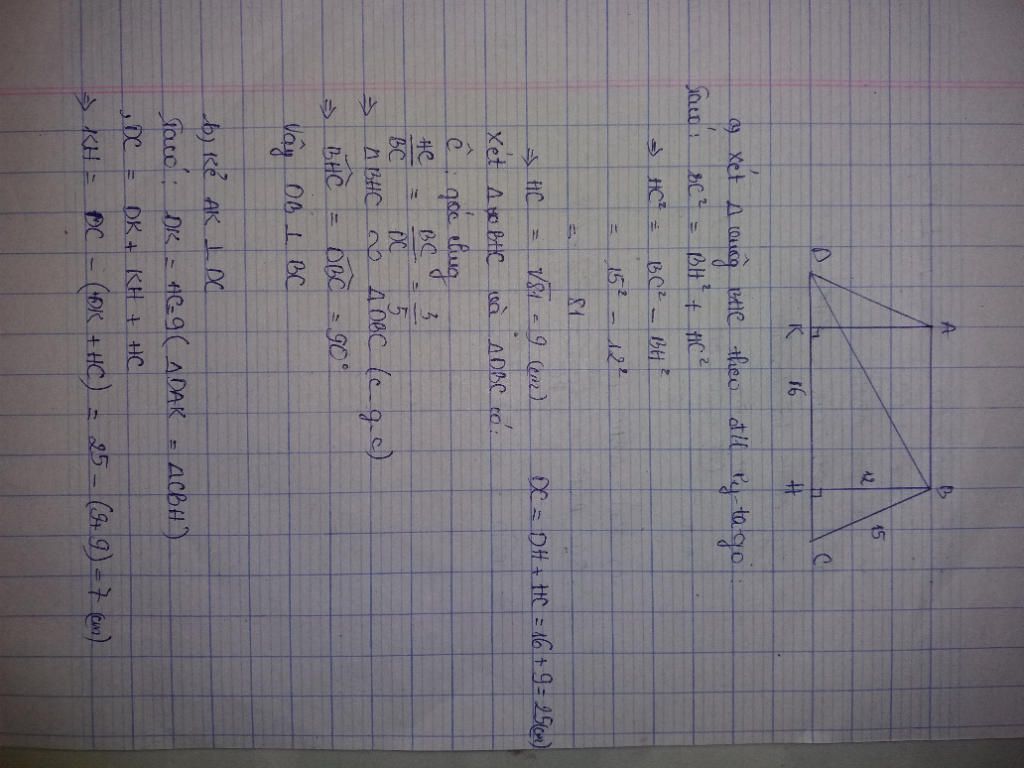 A B
12 15
D K 16 H C
a) Xét Δ vuông BHC theo đll Py-ta-go:
Ta có: BC² = BH² + HC²
⇒ HC² = BC² - BH²
= 15² - 12²
= 81
⇒ HC = √81 = 9 (cm) DC = DH + HC = 16 + 9 = 25(cm)
Xét Δ BHC và ΔDBC có:
Ĉ : góc chung
HC/BC = BC/DC = 3/5
⇒ ΔBHC ∽ ΔDBC (c-g.c)
⇒ BHC = DBC = 90°
Vậy DB ⊥ BC
b) Kẻ AK ⊥ DC
Ta có: DK = HC = 9 (ΔDAK = ΔCBH)
DC = DK + KH + HC
⇒ KH = DC - (DK + HC) = 25 - (9+9) = 7 (cm)